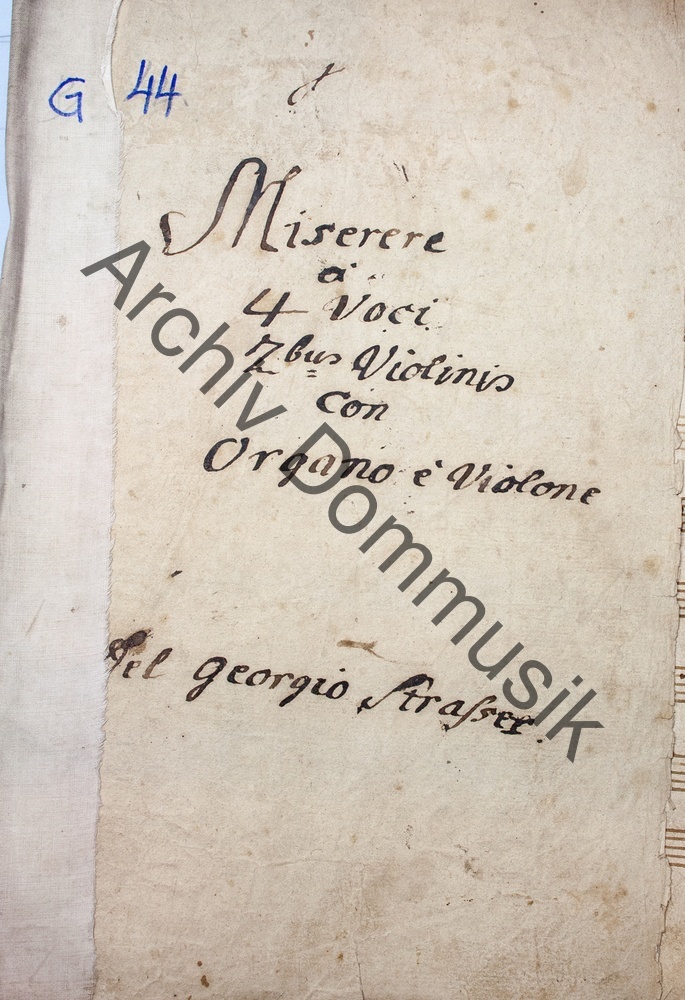 G 44
Miserere
à
4 Voci
2bus Violinis
Con
Organo è Violone
Del Georgio Strasser.
Archiv Dommusik